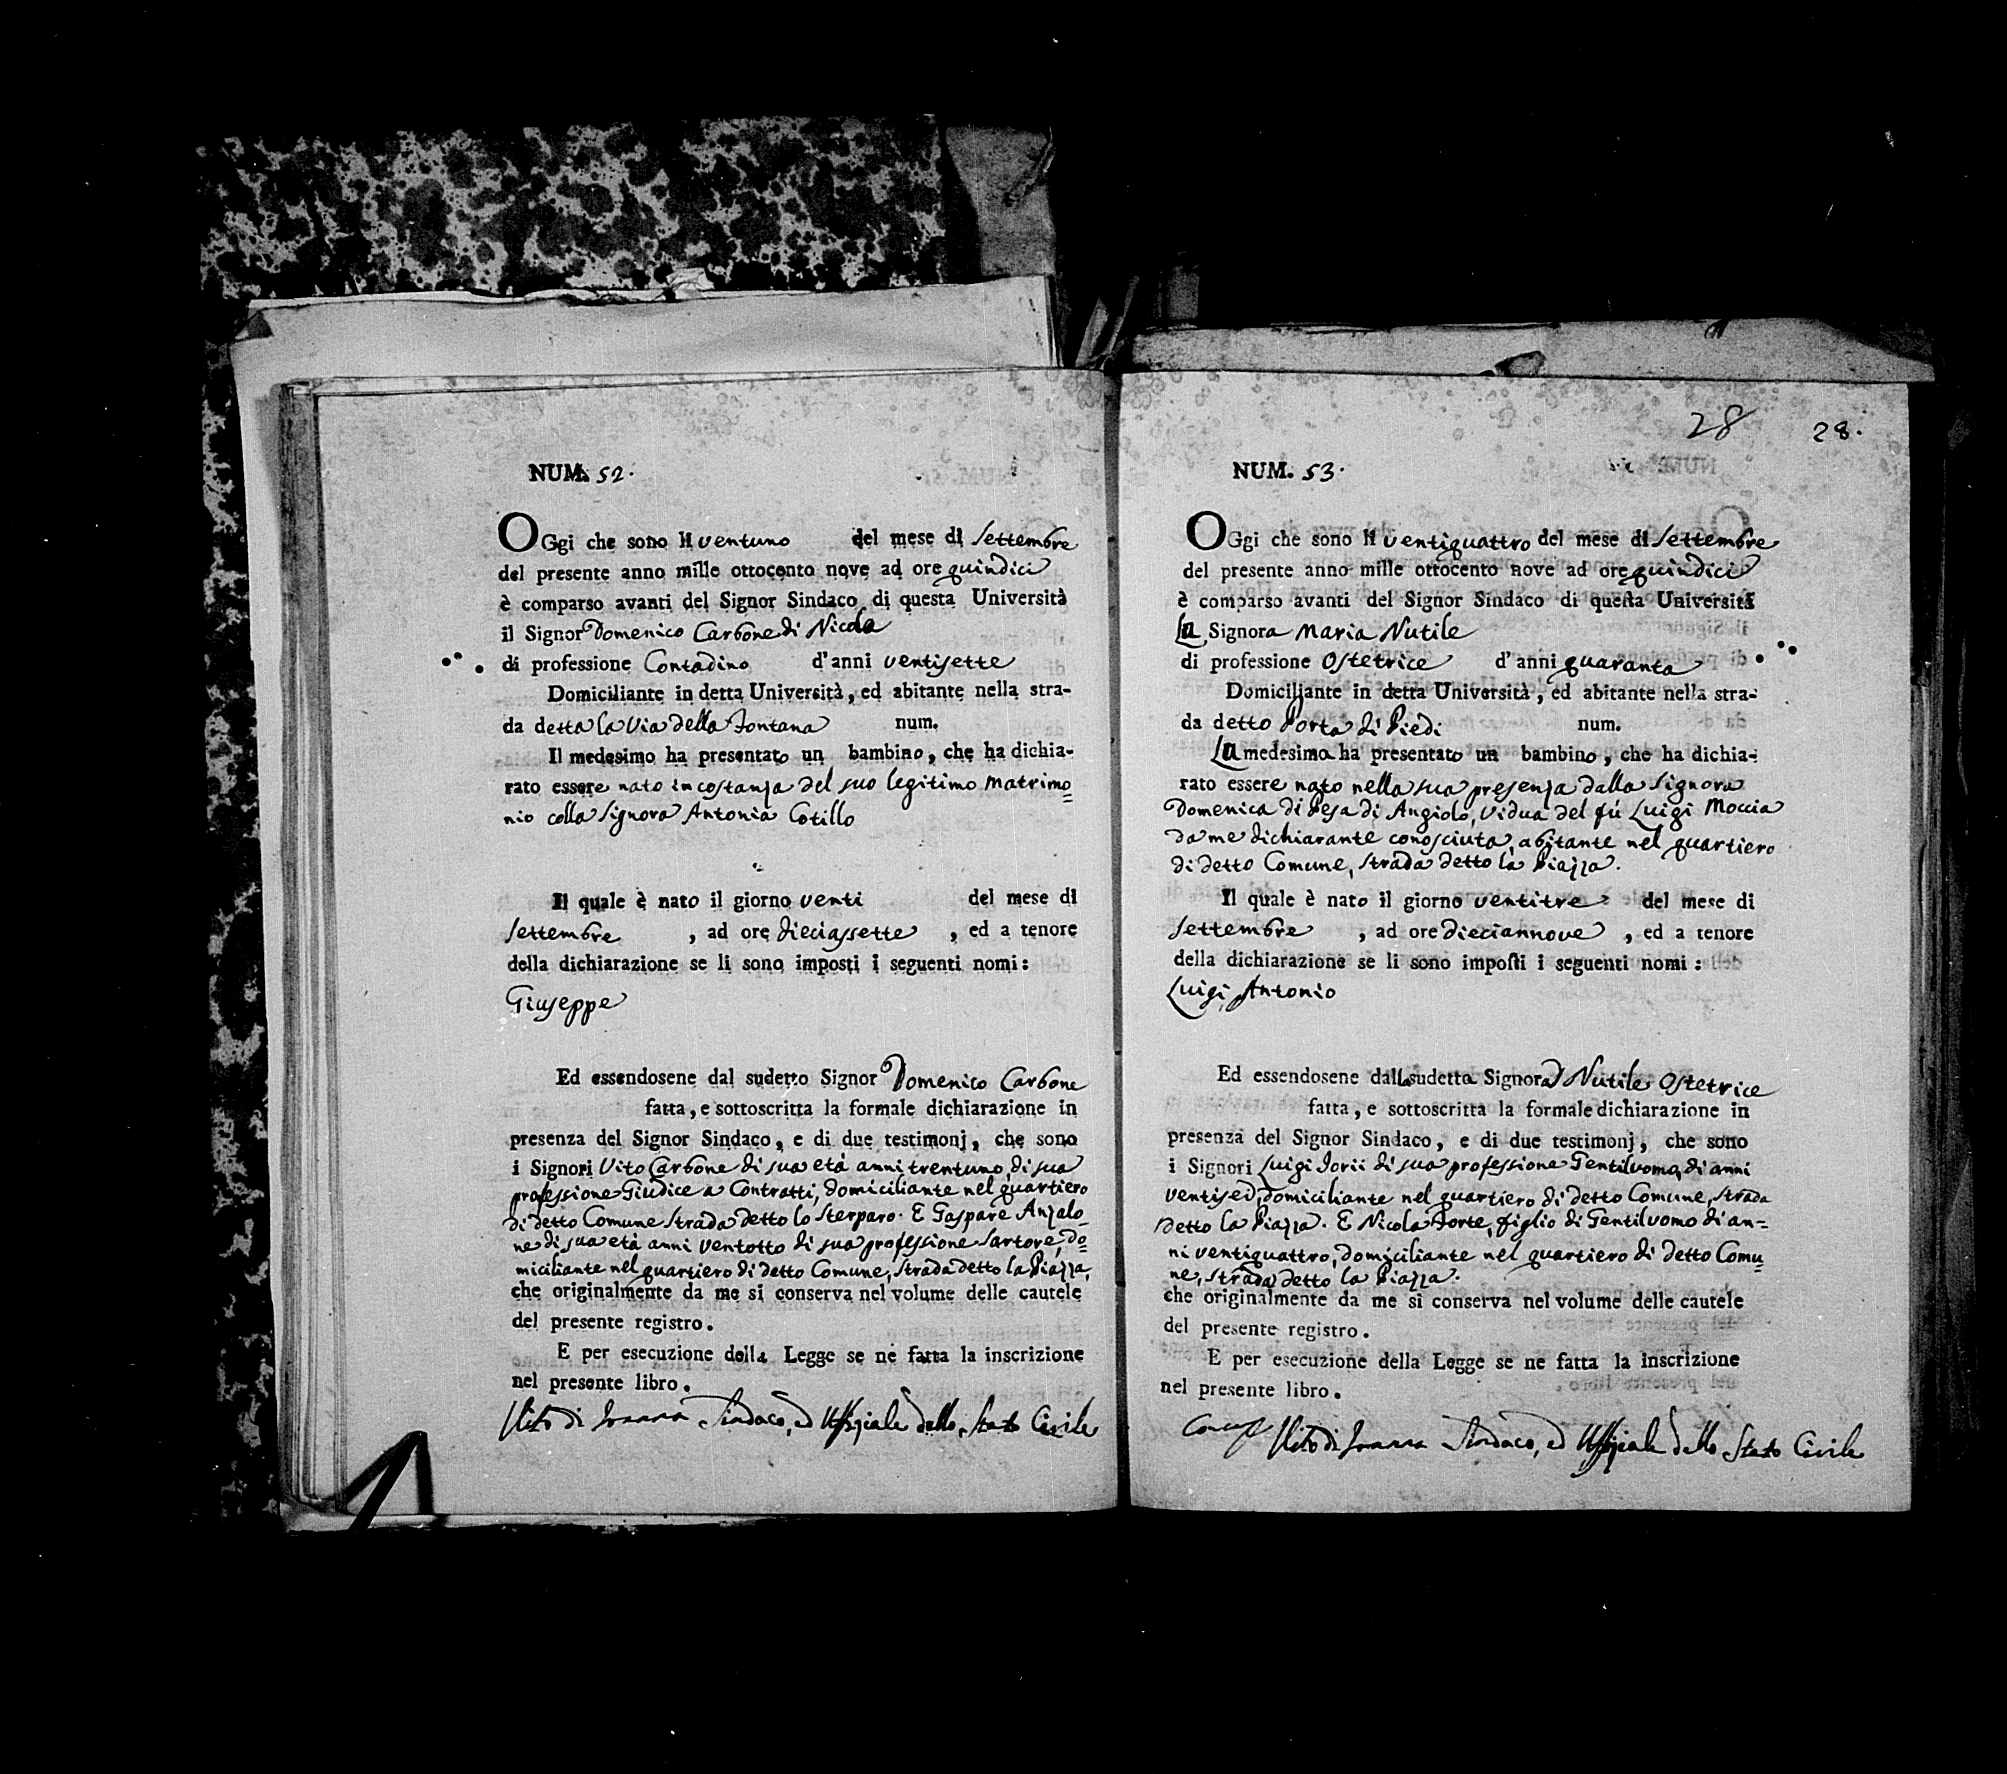 NUM. 52.
OGgi che sono li ventuno del mese di Settembre
del presente anno mille ottocento nove ad ore quindici
è comparso avanti del Signor Sindaco di questa Università
il Signor Domenico Carbone di Nicola
di professione Contadino d'anni ventisette
Domiciliante in detta Università, ed abitante nella stra-
da detta la Via della Fontana num.
Il medesimo ha presentato un bambino, che ha dichia-
rato essere nato in costanza del suo legitimo Matrimo=
nio colla Signora Antonia Cotillo
Il quale è nato il giorno venti del mese di
Settembre, ad ore dieciassette, ed a tenore
della dichiarazione se li sono imposti i seguenti nomi:
Giuseppe
Ed essendosene dal sudetto Signor Domenico Carbone
fatta, e sottoscritta la formale dichiarazione in
presenza del Signor Sindaco, e di due testimonj, che sono
i Signori Vito Carbone di sua età anni trentuno, di sua
professione Giudice a Contratti, domiciliante nel quartiero
di detto Comune Strada detto lo Sterparo. E Gaspare Anzalo=
ne di sua età anni ventotto di sua professione Sartore, do=
miciliante nel quartiero di detto Comune, Strada detto la Piazza,
che originalmente da me si conserva nel volume delle cautele
del presente registro.
E per esecuzione della Legge se ne fatta la inscrizione
nel presente libro.
Vito di Ioanna Sindaco, ed Uffiziale dello Stato Civile
28 28.
NUM. 53.
OGgi che sono li ventiquattro del mese di Settembre
del presente anno mille ottocento nove ad ore quindici
è comparso avanti del Signor Sindaco di questa Università
La Signora Maria Nutile
di professione Ostetrice d'anni quaranta
Domiciliante in detta Università, ed abitante nella stra-
da detto Porta di Piedi num.
La medesima ha presentato un bambino, che ha dichia-
rato essere nato nella sua presenza dalla Signora
Domenica di Pesa di Angiolo, Vidua del fú Luigi Moccia
da me dichiarante conosciuta, abitante nel quartiero
di detto Comune, Strada detto la Piazza.
Il quale è nato il giorno ventitre del mese di
Settembre, ad ore dieciannove, ed a tenore
della dichiarazione se li sono imposti i seguenti nomi:
Luigi, Antonio
Ed essendosene dalla sudetta Signora Nutile Ostetrice
fatta, e sottoscritta la formale dichiarazione in
presenza del Signor Sindaco, e di due testimonj, che sono
i Signori Luigi Iorii di sua professione Gentiluomo, di anni
ventisei, domiciliante nel quartiero di detto Comune, Strada
detto la Piazza. E Nicola Forte, figlio di Gentiluomo di an=
ni ventiquattro, domiciliante nel quartiero di detto Comu=
ne, Strada detto la Piazza.
che originalmente da me si conserva nel volume delle cautele
del presente registro.
E per esecuzione della Legge se ne fatta la inscrizione
nel presente libro.
Vito di Ioanna Sindaco, ed Uffiziale dello Stato Civile